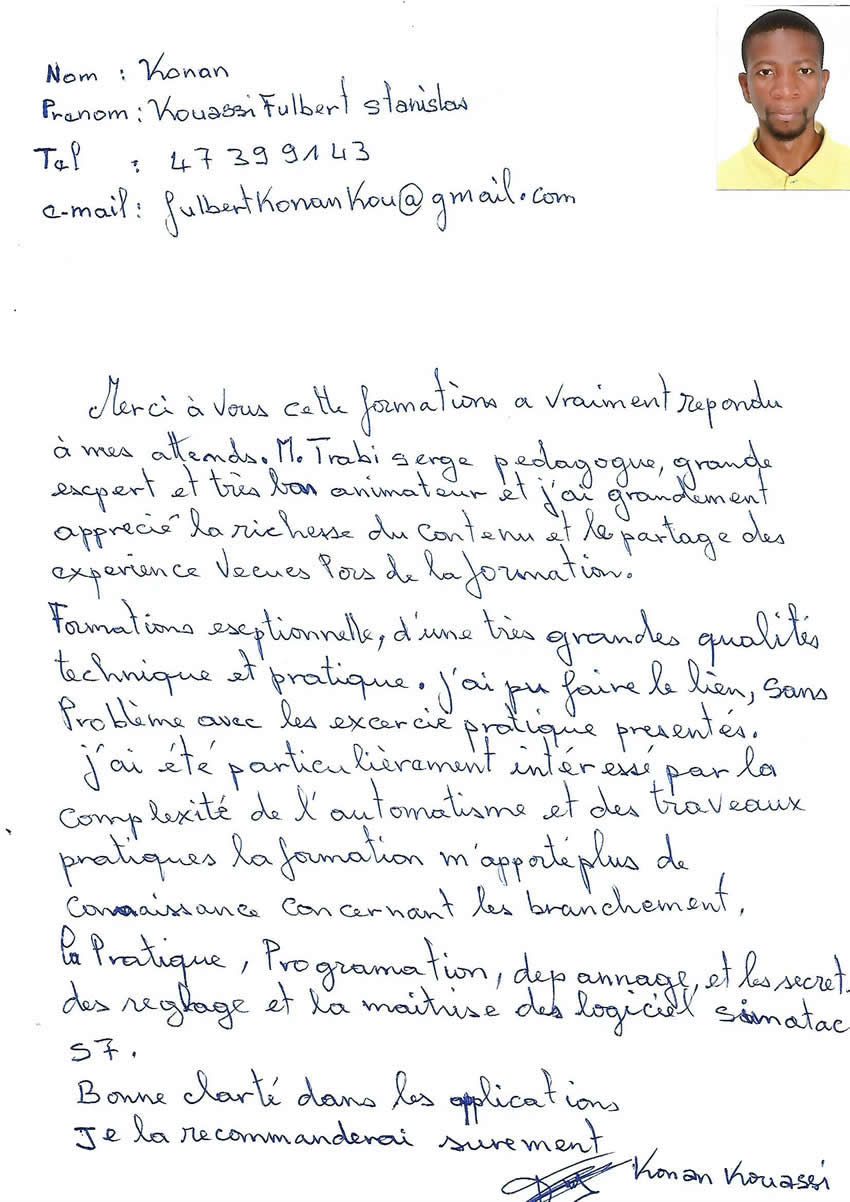 Nom : Konan
Prenom : Kouassi Fulbert Stanislas
Tel : 47 39 91 43
e-mail : fulbertKonanKou@gmail.com
Merci à vous cette formations a vraiment repondu
à mes attends. M. Trabi serge pedagogue, grande
escpert et très bon animateur et j'ai grandement
apprecié la richesse du contenu et le partage des
experience vecues lors de la formation.
Formations esceptionnelle, d'une très grandes qualités
technique et pratique. j'ai pu faire le lien, sans
Problème avec les excercie pratique presentés.
j'ai été particulièrement intéressé par la
complexité de l'automatisme et des traveaux
pratiques la formation m'apporté plus de
connaissance concernant les branchement,
la Pratique, Programation, depannage, et les secret
des reglage et la maitrise des logiciel simatac
S7.
Bonne clarté dans les applications
Je la recommanderai surement
Konan Kouassi